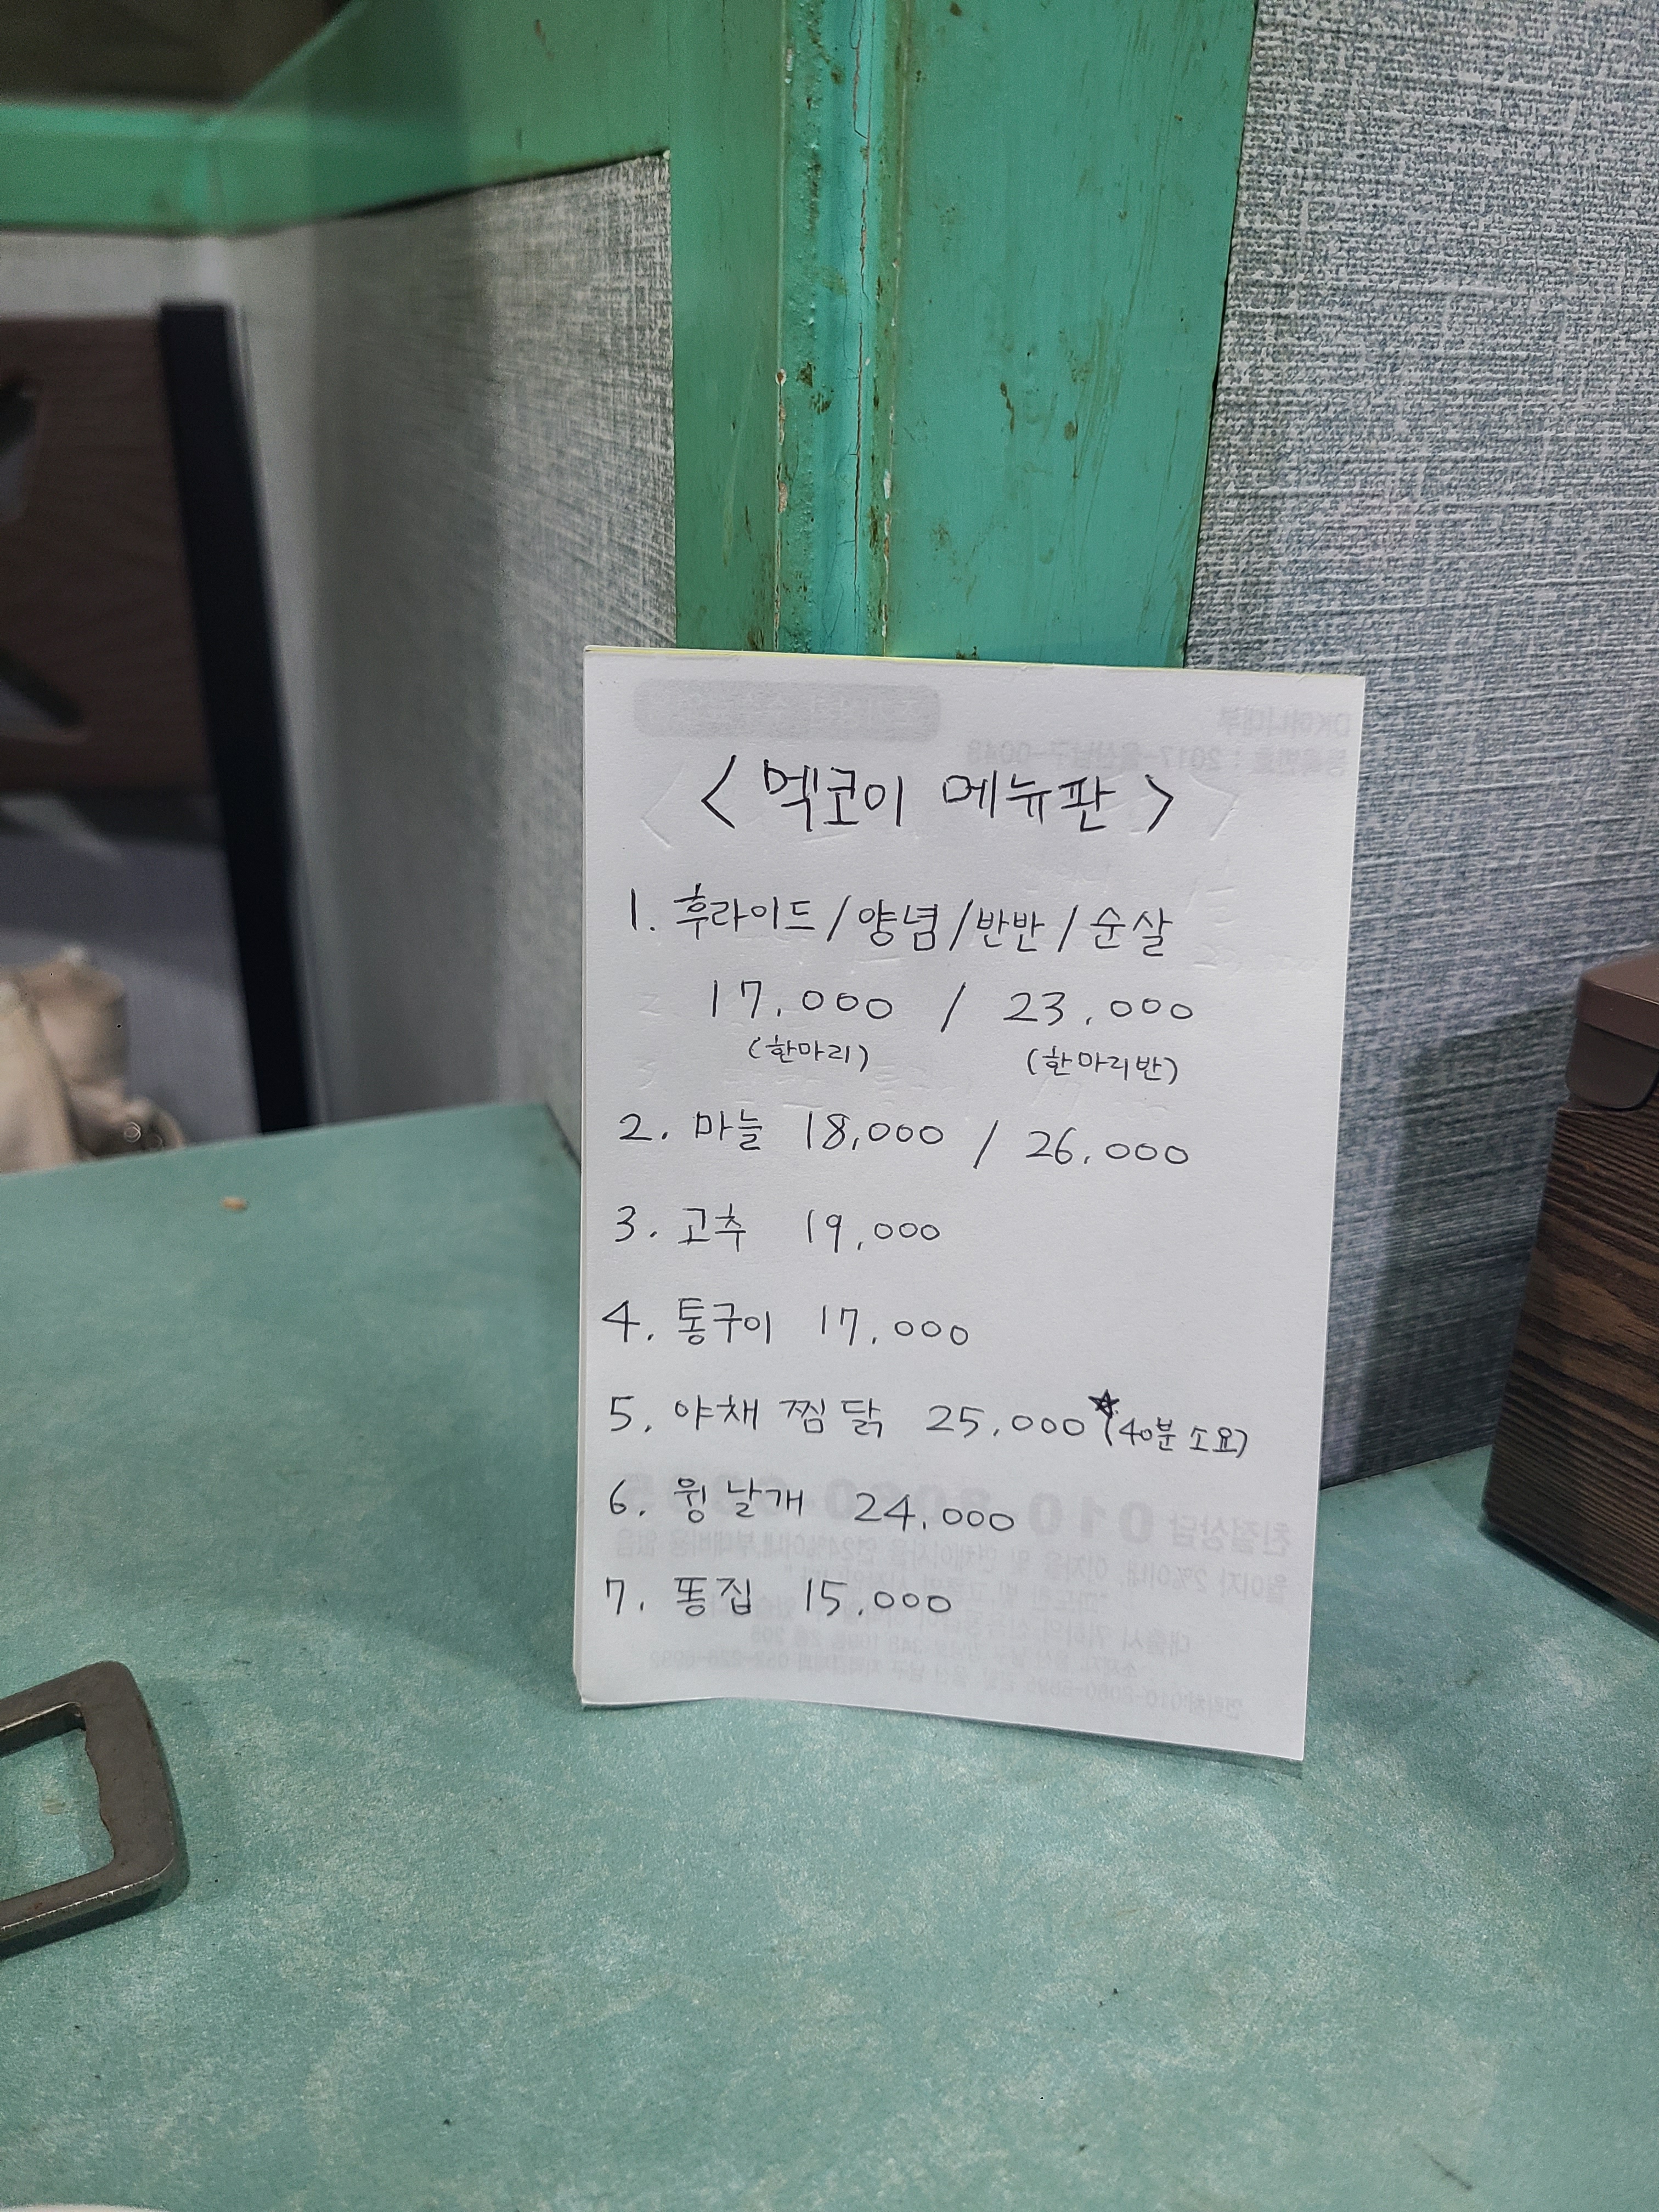 <멕코이 메뉴판>
1. 후라이드/양념/반반/순살
17,000 / 23,000
(한마리) (한마리반)
2. 마늘 18,000 / 26,000
3. 고추 19,000
4. 통구이 17,000
5. 야채 찜닭 25,000 ★(40분 소요)
6. 윙 날개 24,000
7. 똥집 15,000